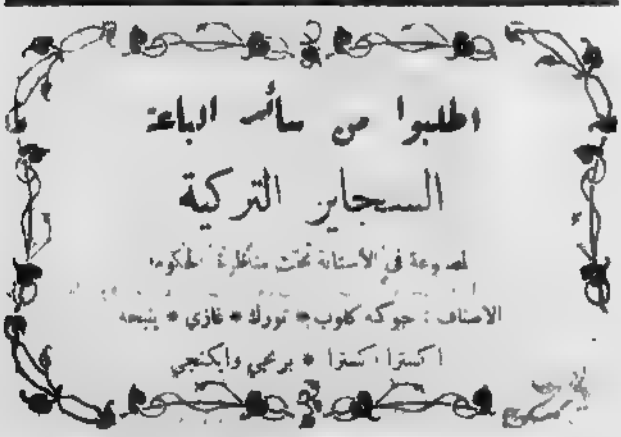 اطلبوا من سائر الباعة
السجاير التركية
لمصنوعة في الأستانة تحت مناظرة الحكومة
الاصناف : جوكه كلوب * تورك * غازي * ينيجه
اكسترا اكسترا * برنجي وايكنجي